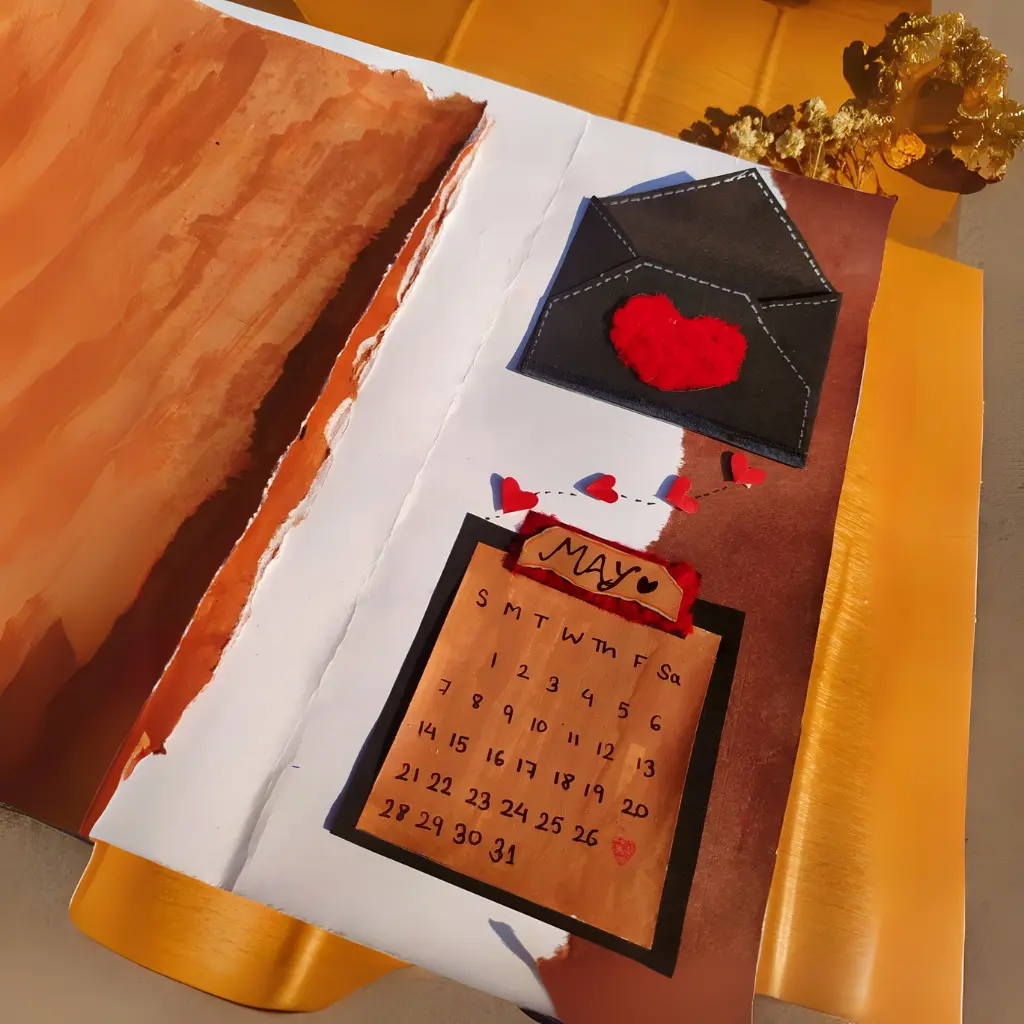 MAY
S M T W Th F Sa
1 2 3 4 5 6
7 8 9 10 11 12 13
14 15 16 17 18 19 20
21 22 23 24 25 26
28 29 30 31